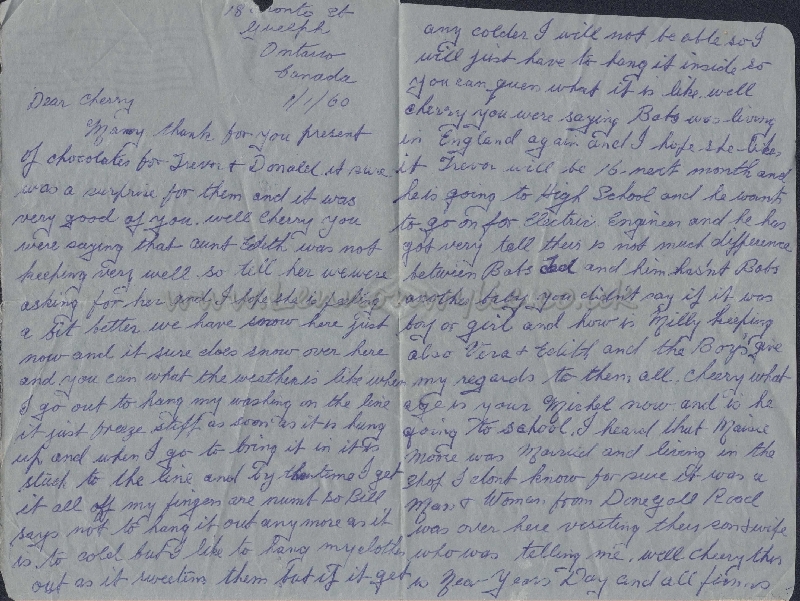 18 Toronto St
Guelph
Ontario
Canada
1/1/60
Dear Cherry
Many thank for you present
of chocolates for Trevor & Donald it sure
was a surprise for them and it was
very good of you. well Cherry you
were saying that aunt Edith was not
keeping very well so tell her we were
asking for her and I hope she is feeling
a bit better we have snow here just
now and it sure does snow over here
and you can what the weather is like when
I go out to hang my washing on the line
it just freeze stiff as soon as it is hung
up and when I go to bring it in it is
stuck to the line and by the time I get
it all off my fingers are numt so Bill
says not to hang it out anymore as it
is to cold but I like to hang my clothes
out as it sweetens them but if it get
any colder I will not be able so I
will just have to hang it inside so
you can guess what it is like. well
cherry you were saying Babs was living
in England again and I hope she likes
it Trevor will be 16 next month and
he is going to High School and he want
to go on for Electric Engineer and he has
got very tall their is not much difference
between Babs Ted and him hasn't Babs
another baby you didn't say if it was
boy or girl and how is Milly keeping
also Vera & Edith and the Boys give
my regards to them all. cherry what
age is your Mishel now and is he
going to school. I heard that Maisie
Moore was Married and living in the
shop I dont know for sure it was a
Man & Woman from Donegall Road
was over here visiting their son & wife
who was telling me. well cherry this
is New Years Day and all